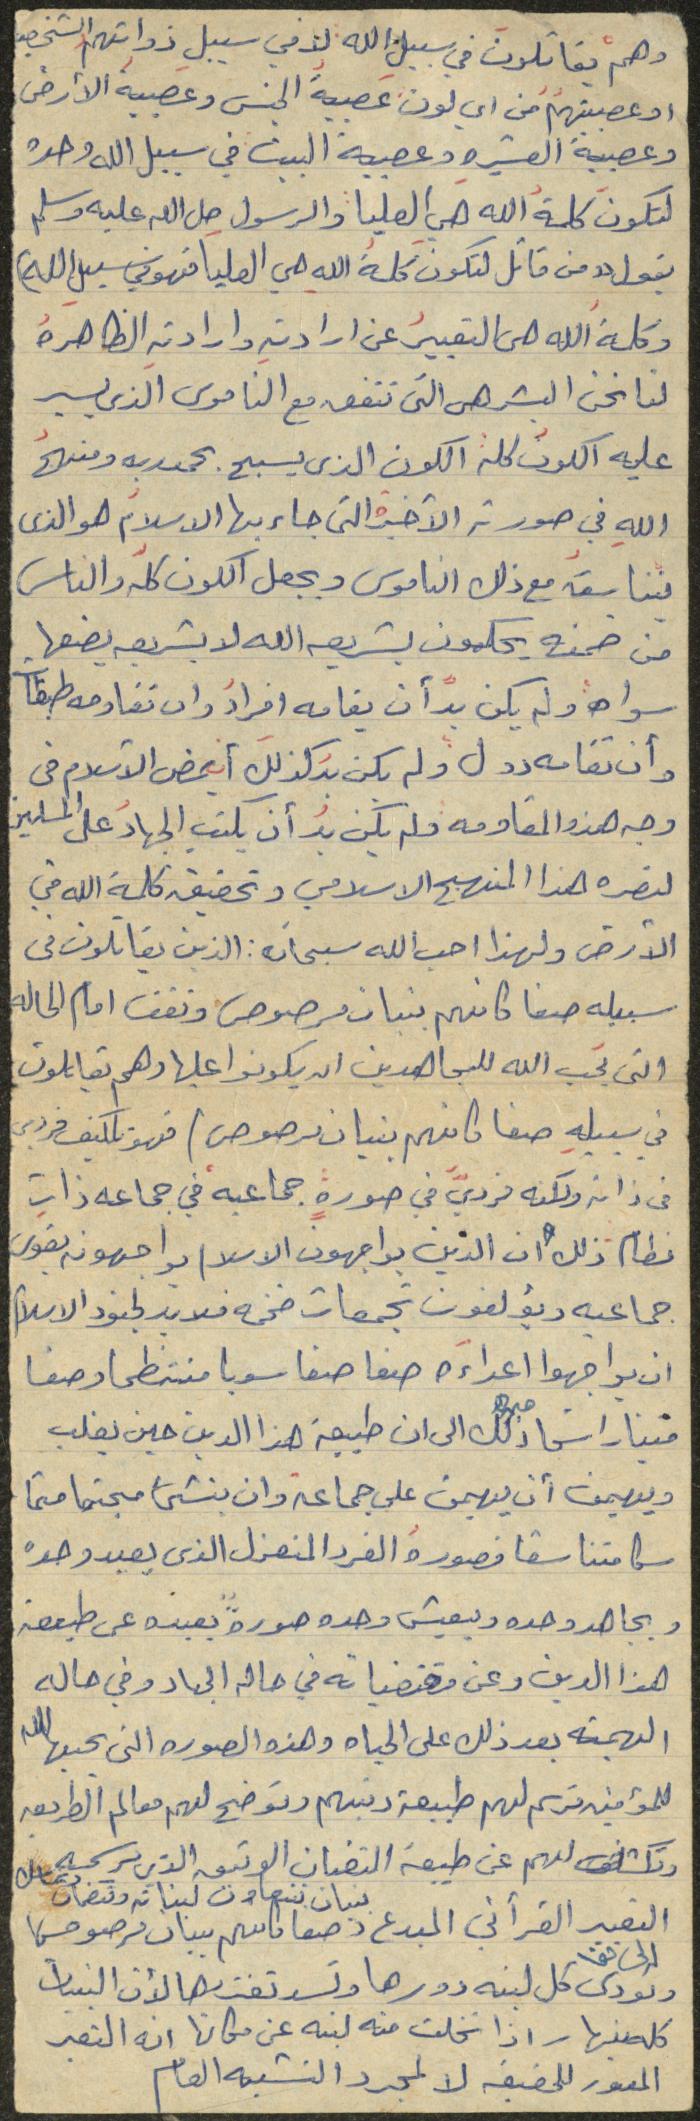 وهم يقاتلون في سبيل الله لا في سبيل ذواتهم الشخصية
او عصبيتهم من اي لون عصبية الجنس وعصبية الأرض
وعصبية العشيره وعصبية البيت في سبيل الله وحده
لتكون كلمة الله هي العليا والرسول صل الله عليه وسلم
يقول ((من قاتل لتكون كلمة الله هي العليا فهو في سبيل الله))
وكلمة الله هى التعبير عن ارادته وارادته الظاهرة
لنا نحن البشر هى التى تتفق مع الناموس الذى يسير
عليه الكون كله الكون الذى يسبح بحمد ربه ومنهج
الله في صورته الأخيرة التى جاء بها الاسلام هو الذى
يتناسق مع ذلك الناموس ويجعل الكون كله والناس
من ضمنه يحكمون بشريعه الله لا بشريعه يضعها
سواه ولم يكن بد أن يقامه افراد وان تقاومه طبقات
وأن تقامه دول ولم يكن بد كذلك أن يمضى الأسلام فى
وجه هذه المقاومه ولم يكن بد أن يكتب الجهاد على المسلمين
لنصره هذا المنهج الاسلامي وتحقيق كلمة الله في
الأرض ولهذا احب الله سبحانه: الذين يقاتلون فى
سبيله صفا كانهم بنيان مرصوص ونقف امام الحاله
التى يحب الله للمجاهدين ان يكونوا عليها وهم يقاتلون
في سبيله صفا كانهم بنيان مرصوص) فهو تكليف فردي
فى ذاته ولكنه فردي في صورة جماعية في جماعه ذات
نظام ذلك ان الذين يواجهون الاسلام يواجهونه بقوى
جماعيه ويؤلفون تجمعات ضخمه فلا بد لجنود الاسلام
ان يواجهوا اعداءه صفا صفا سويا منتظما وصفا
متينا راسخا ذلك الى ان طبيعة هذا الدين حين يغلب
ويهيمن أن يهيمن على جماعة وان ينشئ مجتمعا متما
سكا متناسقا فصورة الفرد المنعزل الذى يعبد وحده
ويجاهد وحده ويعيش وحده صورة بعيده عن طبيعة
هذا الدين وعن مقتضياته في حاله الجهاد وفي حاله
الهيمنه بعد ذلك على الحياه وهذه الصوره التى يحبها الله
للمؤمنين ترسم لهم طبيعة دينهم وتوضح لهم معالم الطريق
وتكشف لهم عن طبيعة التضامن الوثيق الذي يرسمه
بنيان تتعاون لبناته وتتضامن وتتماسك
التعبير القرآني المبدع ((صفا كانهم بنيان مرصوص))
وتؤدى كل لبنه دورها وتسد ثغرتها لأن البنيان
كله ينهار اذا تخلت منه لبنه عن مكانها انه التعبير
المصور للحقيقه لا لمجرد التشبيه العام